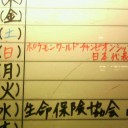 (金)
(土)
(日) ポケモンワールドチャンピオンシップ
日本代表
(月)
(火)
(水) 生命保険協会
(木)